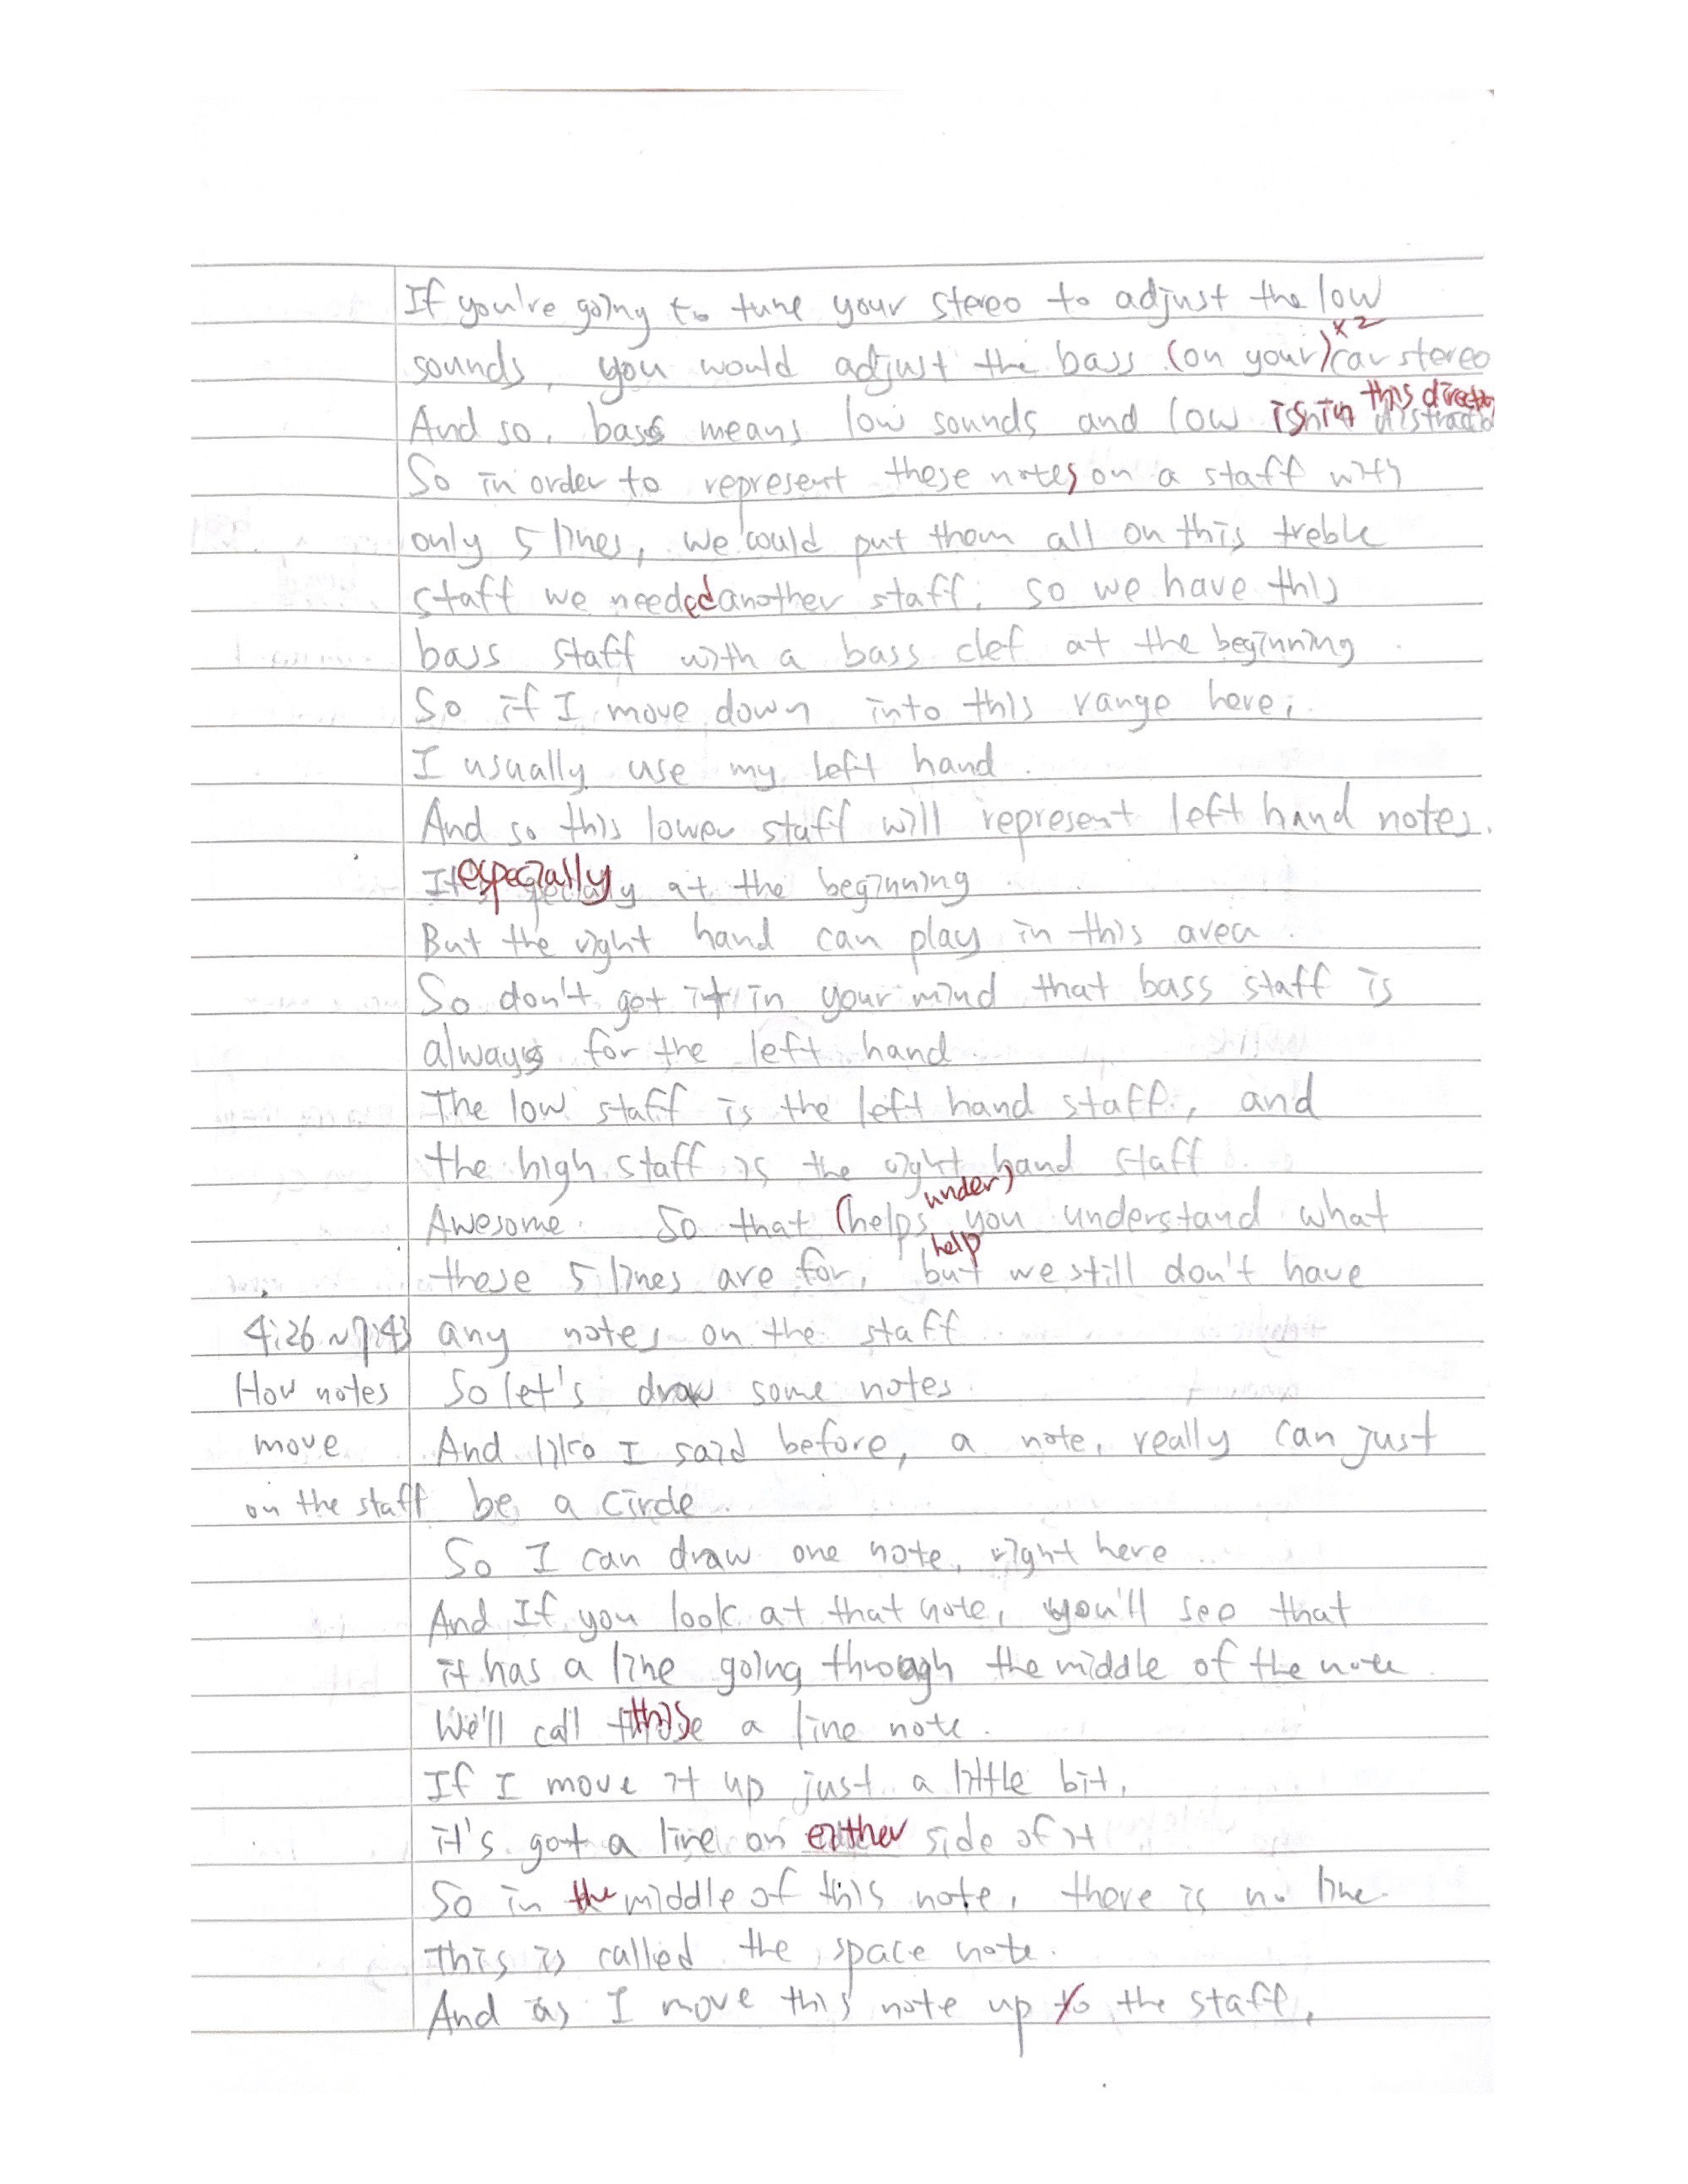 If you're going to tune your stereo to adjust the low
x2
sounds, you would adjust the bass (on your) car stereo
this direction
And so, bass means low sounds and low is in
So in order to represent these notes on a staff with
only 5 lines, we could put them all on this treble
staff we needed another staff. so we have this
bass staff with a bass clef at the beginning.
So if I move down into this range here,
I usually use my left hand.
And so this lower staff will represent left hand notes.
It especially at the beginning
But the right hand can play in this area.
So don't get it in your mind that bass staff is
always for the left hand.
The low staff is the left hand staff, and
the high staff is the right hand staff
under)
Awesome. So that (helps you understand what
help
these 5 lines are for, but we still don't have
4:26~7:43 any notes on the staff
How notes So let's draw some notes.
move And like I said before, a note, really can just
on the staff be a circle.
So I can draw one note, right here
And If you look at that note, you'll see that
it has a line going through the middle of the note.
We'll call this a line note.
If I move it up just a little bit,
it's got a line on either side of it
So in the middle of this note, there is no line.
This is called the space note.
And as I move this note up to the staff,